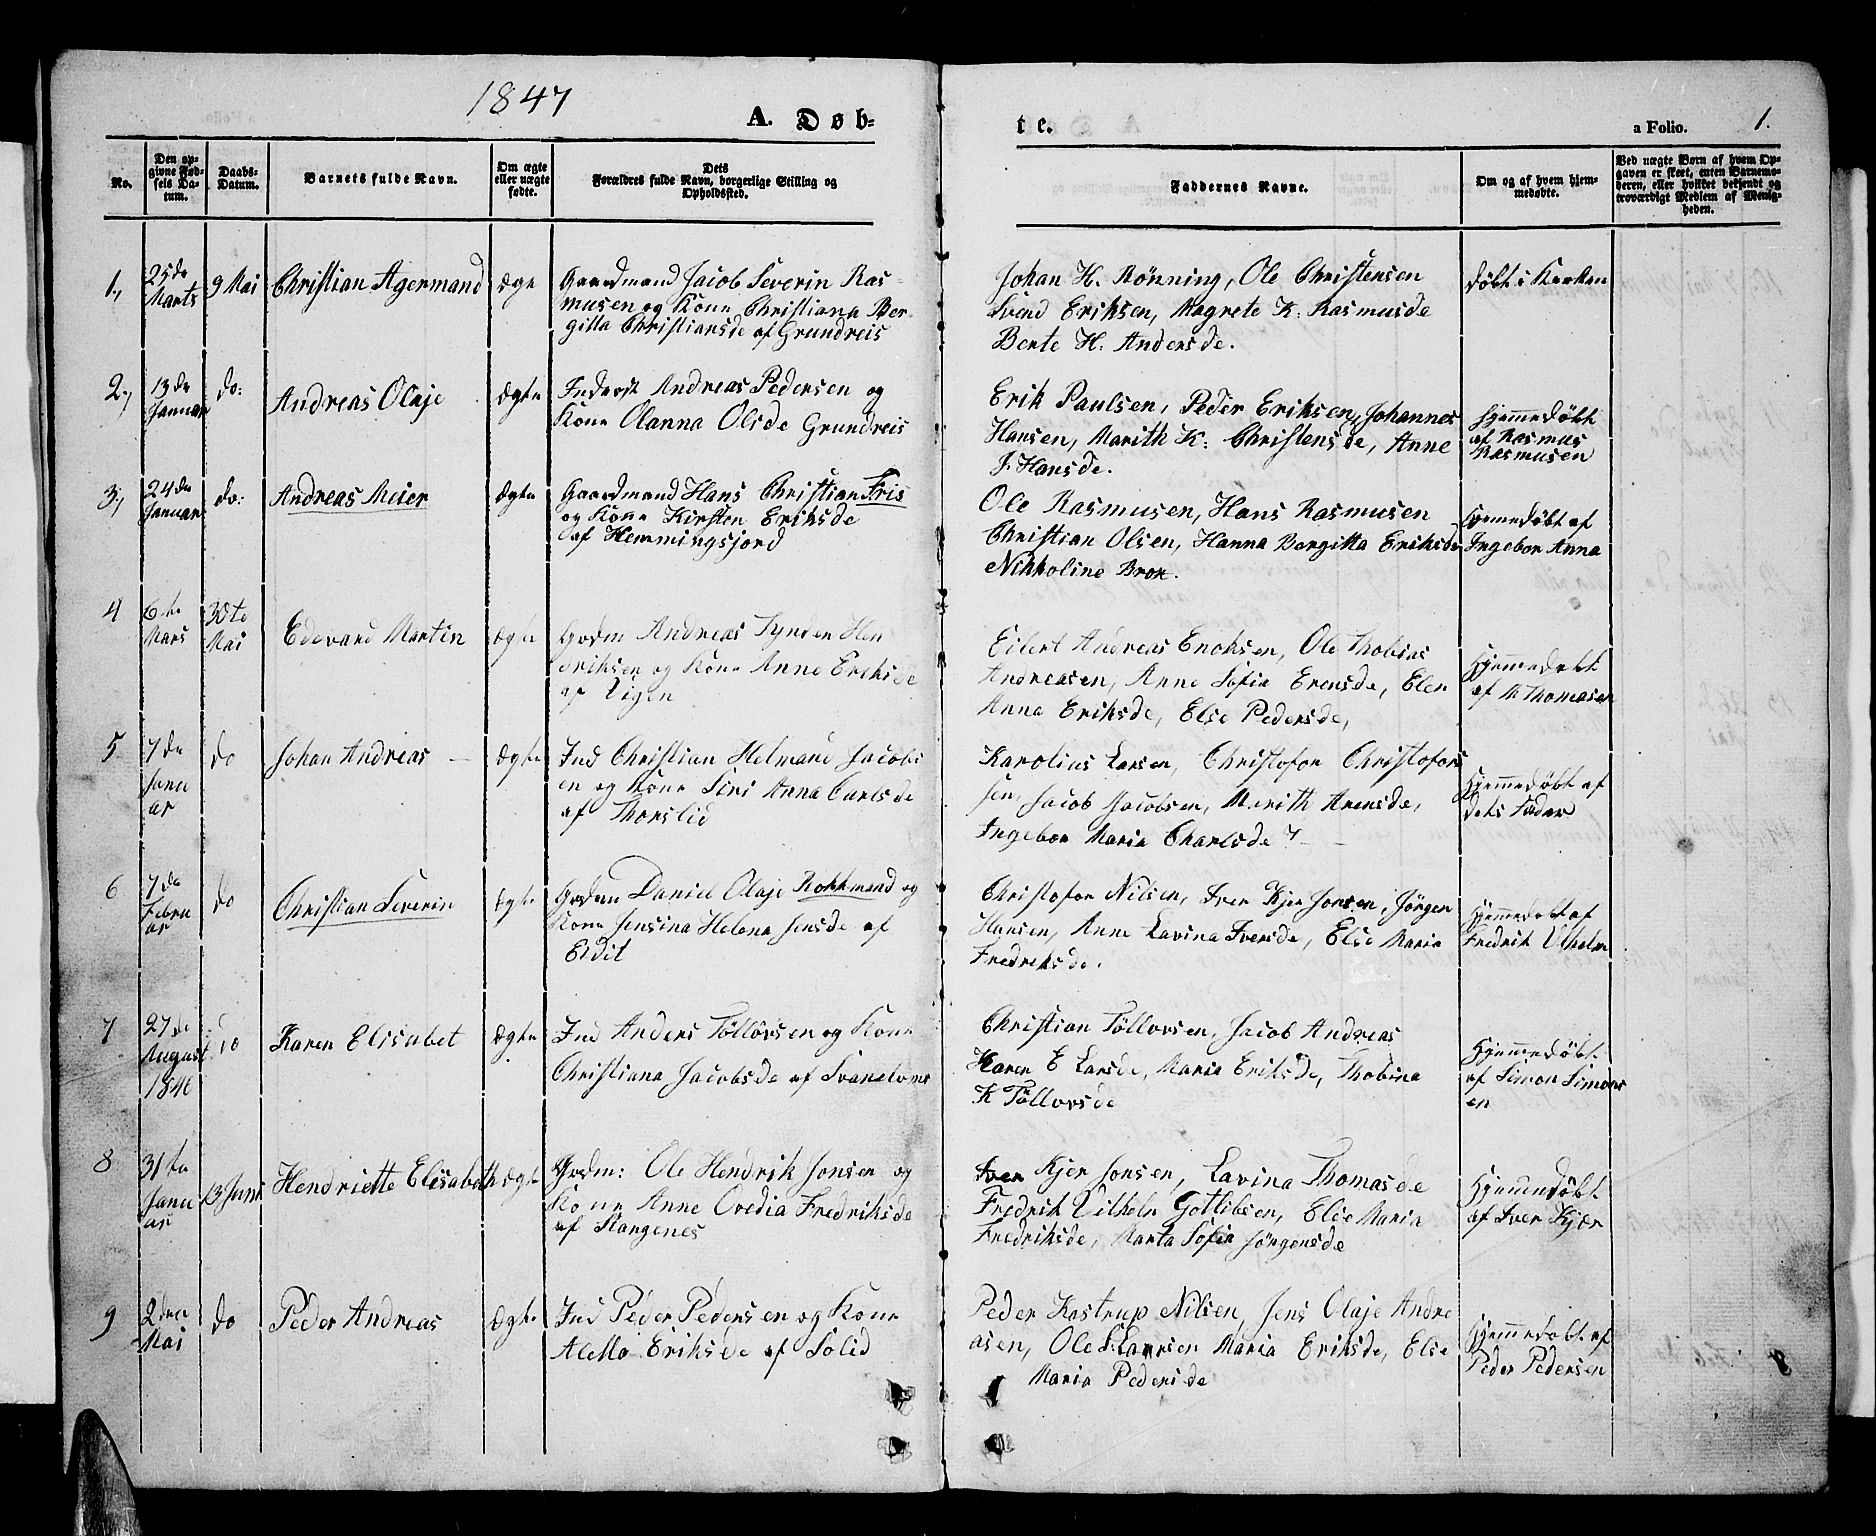 1847
A. Døb-
te.
a Folio. 1.
No.
Den op-
givne Fød-
sels Da-
tum.
Daabs-
Datum.
Barnets fulde Navn.
Om ægte
eller uægte
fødte.
Dets
Forældres fulde Navn, borgerlige Stilling og
Opholdssted.
Faddernes Navne.
Om og af hvem hjem-
medøbte.
Ved uægte Børn af hvem Op-
gaven er skeet, enten Barnemo-
deren, eller hvilket bekjendt og
troværdigt Medlem af Menig-
heden.
1,
25de
Marts
9 Mai
Christian Agermand
ægte
Gaardmand Jacob Severin Ras-
musen og Kone Christiana Ber-
gitta Christiansde af Grundreis
Johan H. Rönning, Ole Christensen
Svend Eriksen, Magrete K: Rasmusde
Berte H. Andersde.
Døbt i Kirken
2.,
13de
Januar
do:
Andreas Olaje
Ægte
Inderst Andreas Pedersen og
Kone Olanna Olsde Grundreis
Erik Paulsen, Peder Eriksen, Johannes
Hansen, Marith K: Christensde, Anne
J. Hansde.
Hjemmedøbt
af Rasmus
Rasmusen
3,
24de
Januar
do:
Andreas Meier
Ægte
Gaardmand Hans Christian Fris
og Kone Kirsten Eriksde
af Hemmingsjord
Ole Rasmusen, Hans Rasmusen
Christian Olsen, Hanna Bergitta Eriksde
Nikkoline Brox.
Hjemmedøbt af
Ingebor Anna
4
6te
Mars
30te
Mai
Edevard Martin
Ægte
Grdm Andreas Tynder Hen
driksen og Kone Anne Eriksde
af Vigen
Eilert Andreas Enoksen, Ole Thobias
Andreasen, Anne Sofia Erensde, Elen
Anna Eriksde, Else Pedersde,
Hjemmedøbt
af M Thomasen
5
7de
Janu
ar
do
Johan Andreas
Ægte
Ind Christian Helmand Jacobs
en og Kone Siri Anna Carlsde
af Thorslid
Karolius Larsen, Christofor Christofors
sen, Jacob Jacobsen, Marith Arensde,
Ingebor Maria Charlsde
Hjemmedøbt af
dets Fader
6
7de
Febru
ar
do
Christian Severin
Ægte
Grdm Daniel Olaje Rokkmand og
Kone Jensina Helena Jensde af
Eidet
Christofor Nilsen, Iver Kjer Jonsen, Jörgen
Hansen, Anne Lavina Iversde, Else Maria
Fredreksde.
Hjemmedøbt af
Fredrik Vlhelm
7
27de
August
1846
do
Karen Elisabet
Ægte
Ind Anders Töllövsen og Kone
Christiana Jacobsde af Svanelvmo
Christian Töllovsen, Jacob Andreas
Karen E Larsde, Maria Eriksde, Thobina
K Töllovsde
Hjemmedøbt
af Simon Simons
en
8
31te
Janu
ar
13 Juni
Hendriette Elisabeth
Ægte
Grdm: Ole Hendrik Jonsen og
Kone Anne Ovedia Fredriksde
af Kargenes
Iver Kjer Jonsen, Lavina Thomasde
Fredrik Vilhelm Gotlibsen, Else Maria
Fredriksde, Marta Sofia Jörgensde
Hjemmedøbt
af Iver Kjær
9
2den
Mai
do
Peder Andreas
Ægte
Ind Peder Pedersen og Kone
Aletta Eriksde af Solid
Peder Kastrup Nilsen, Jens Olaje Andre
asen, Ole Larsen Maria Eriksde, Else
Maria Pedersde
Hjemmedøbt af
Peder Pedersen